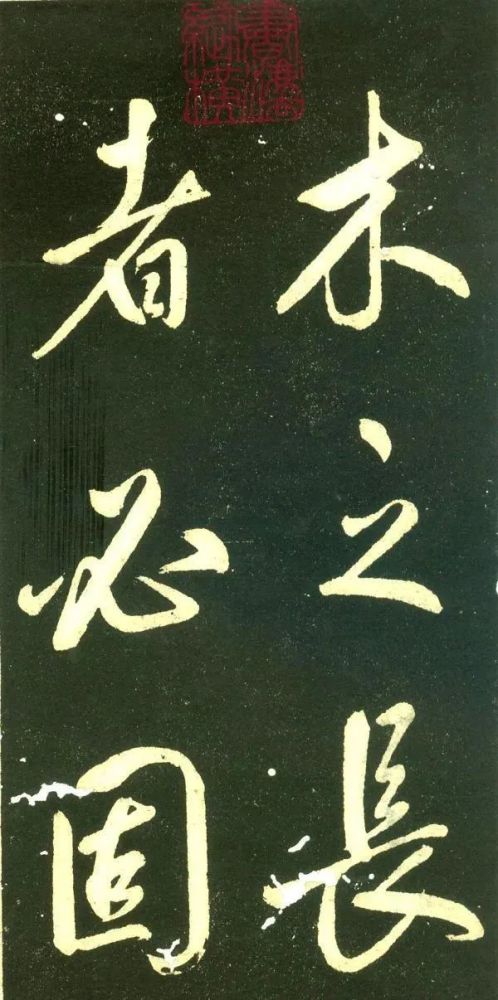 木之長
者必固